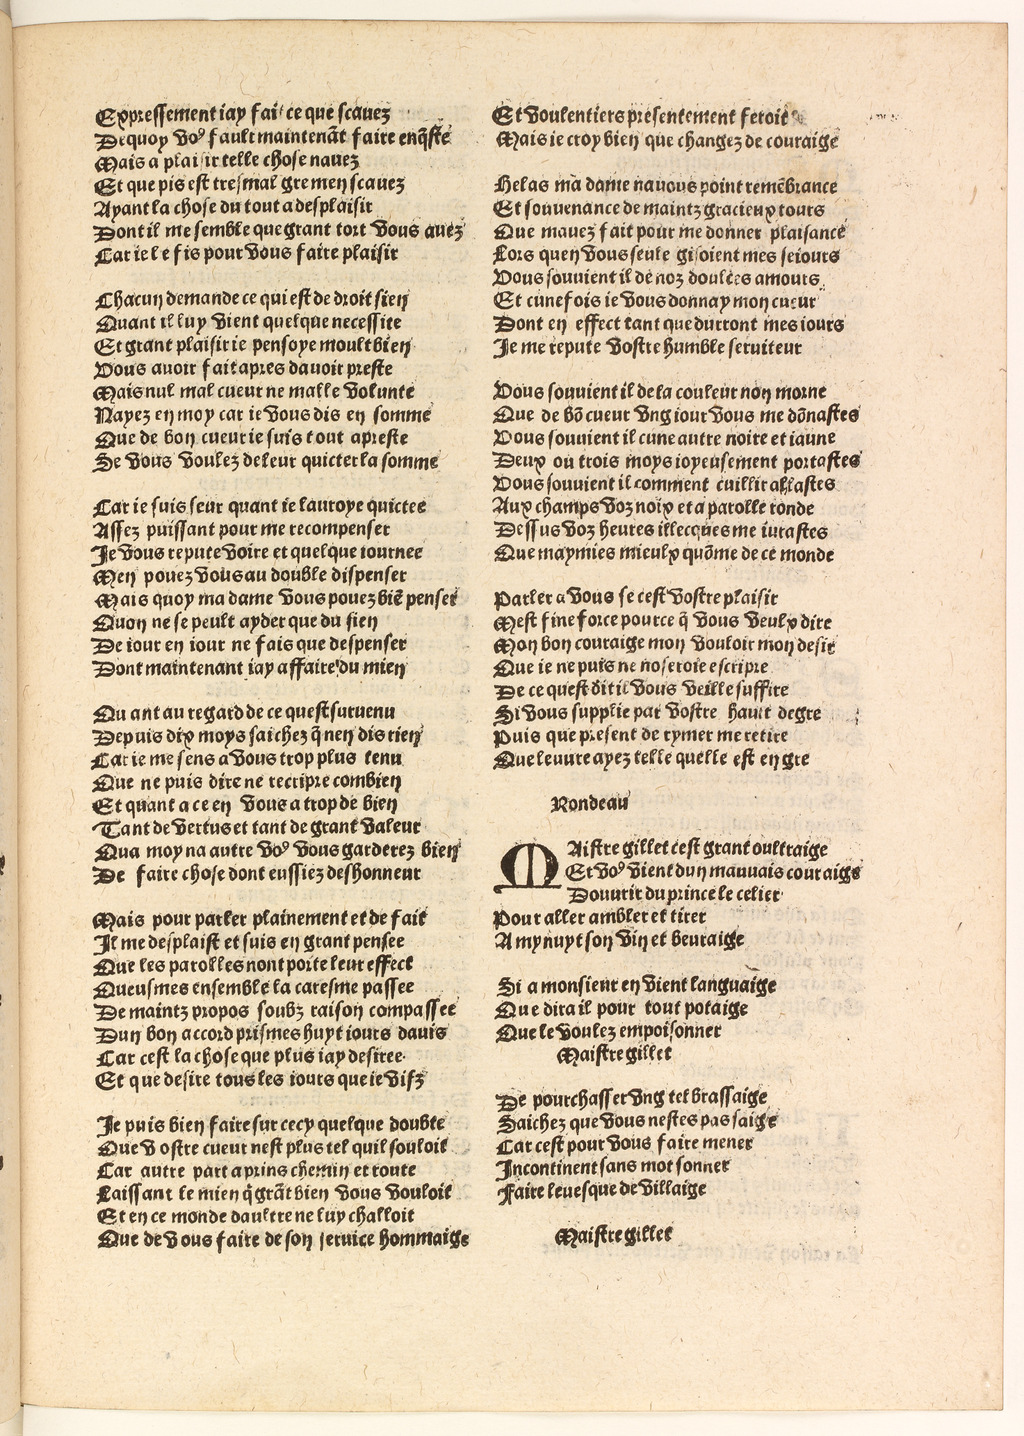 Expressement iay fait ce que scauez
De quoy vo⁹ fault maintenãt faire enq̃ste
Mais a plaisir telle chose nauez
Et que pis est tresmal gre men scauez
Ayant la chose du tout a desplaisir
Dont il me semble que grant tort vous auez
Car ie le fis pour vous faire plaisir

Chacun demande ce qui est de droit sien
Quant il luy vient quelque necessite
Et grant plaisir ie pensoye moult bien
Vous auoir fait apres dauoir preste
Mais nul mal cueur ne malle volunte
Nayez en moy car ie vous dis en somme
Que de bon cueur ie suis tout apreste
Se vous voulez de leur quicter la somme

Car ie suis seur quant ie lauroye quictee
Assez puissant pour me recompenser
Je vous repute voire et quelque iournee
Men pouez vous au double dispenser
Mais quoy ma dame vous pouez biẽ penser
Quon ne se peult ayder que du sien
De iour en iour ne fais que despenser
Dont maintenant iay affaire du mien

Quant au regard de ce quest suruenu
Depuis dix moys saichez q̃ nen dis rien
Car ie me sens a vous trop plus tenu
Que ne puis dire ne rescripre combien
Et quant a ce en vous a trop de bien
Tant de vertus et tant de grant valeur
Qua moy na autre vo⁹ vous garderez bien
De faire chose dont eussiez deshonneur

Mais pour parler plainement et de fait
Il me desplaist et suis en grant pensee
Que les parolles nont porte leur effect
Queusmes ensemble la caresme passee
De maintz propos soubz raison compassee
Dun bon accord prismes huyt iours dauis
Car cest la chose que plus iay desiree
Et que desire tous les iours que ie vifz

Je puis bien faire sur cecy quelque doubte
Que vostre cueur nest plus tel quil souloit
Car autre part a prins chemin et route
Laissant le mien q̃ grãt bien vous vouloit
Et en ce monde daultre ne luy challoit
Que de vous faire de son seruice hommaige

Et voulentiers presentement feroit
Mais ie croy bien que changez de couraige

Helas ma dame nauous point remẽbrance
Et souuenance de maintz gracieux tours
Que mauez fait pour me donner plaisance
Lors quen vous seule gisoient mes seiours
Vous souuient il de noz doulces amours
Et cunefois ie vous donnay mon cueur
Dont en effect tant que durront mes iours
Je me repute vostre humble seruiteur

Vous souuient il de la couleur non morne
Que de bõ cueur vng iour vous me dõnastes
Vous souuient il cune autre noire et iaune
Deux ou trois moys ioyeusement portastes
Vous souuient il comment cuillir allastes
Aux champs voz noix et a parolle ronde
Dessus voz heures illecques me iurastes
Que maymies mieulx quõme de ce monde

Parler a vous se cest vostre plaisir
Mest fine force pource q̃ vous veulx dire
Mon bon couraige mon vouloir mon desir
Que ie ne puis ne noseroie escripre
De ce quest dit il vous veille suffire
Si vous supplie par vostre hault degre
Puis que present de rymer me retire
Que leuure ayez telle quelle est en gre

Rondeau

MAistre gillet cest grant oultraige
Et vo⁹ vient dun mauuais couraige
Douurir du prince le celier
Pour aller ambler et tirer
A mynuyt son vin et beuraige

Si a monsieur en vient languaige
Que dira il pour tout potaige
Que le voulez empoisonner
Maistre gillet

De pourchasser vng tel brassaige
Saichez que vous nestes pas saige
Car cest pour vous faire mener
Incontinent sans mot sonner
Faire leuesque de villaige

Maistre gillet